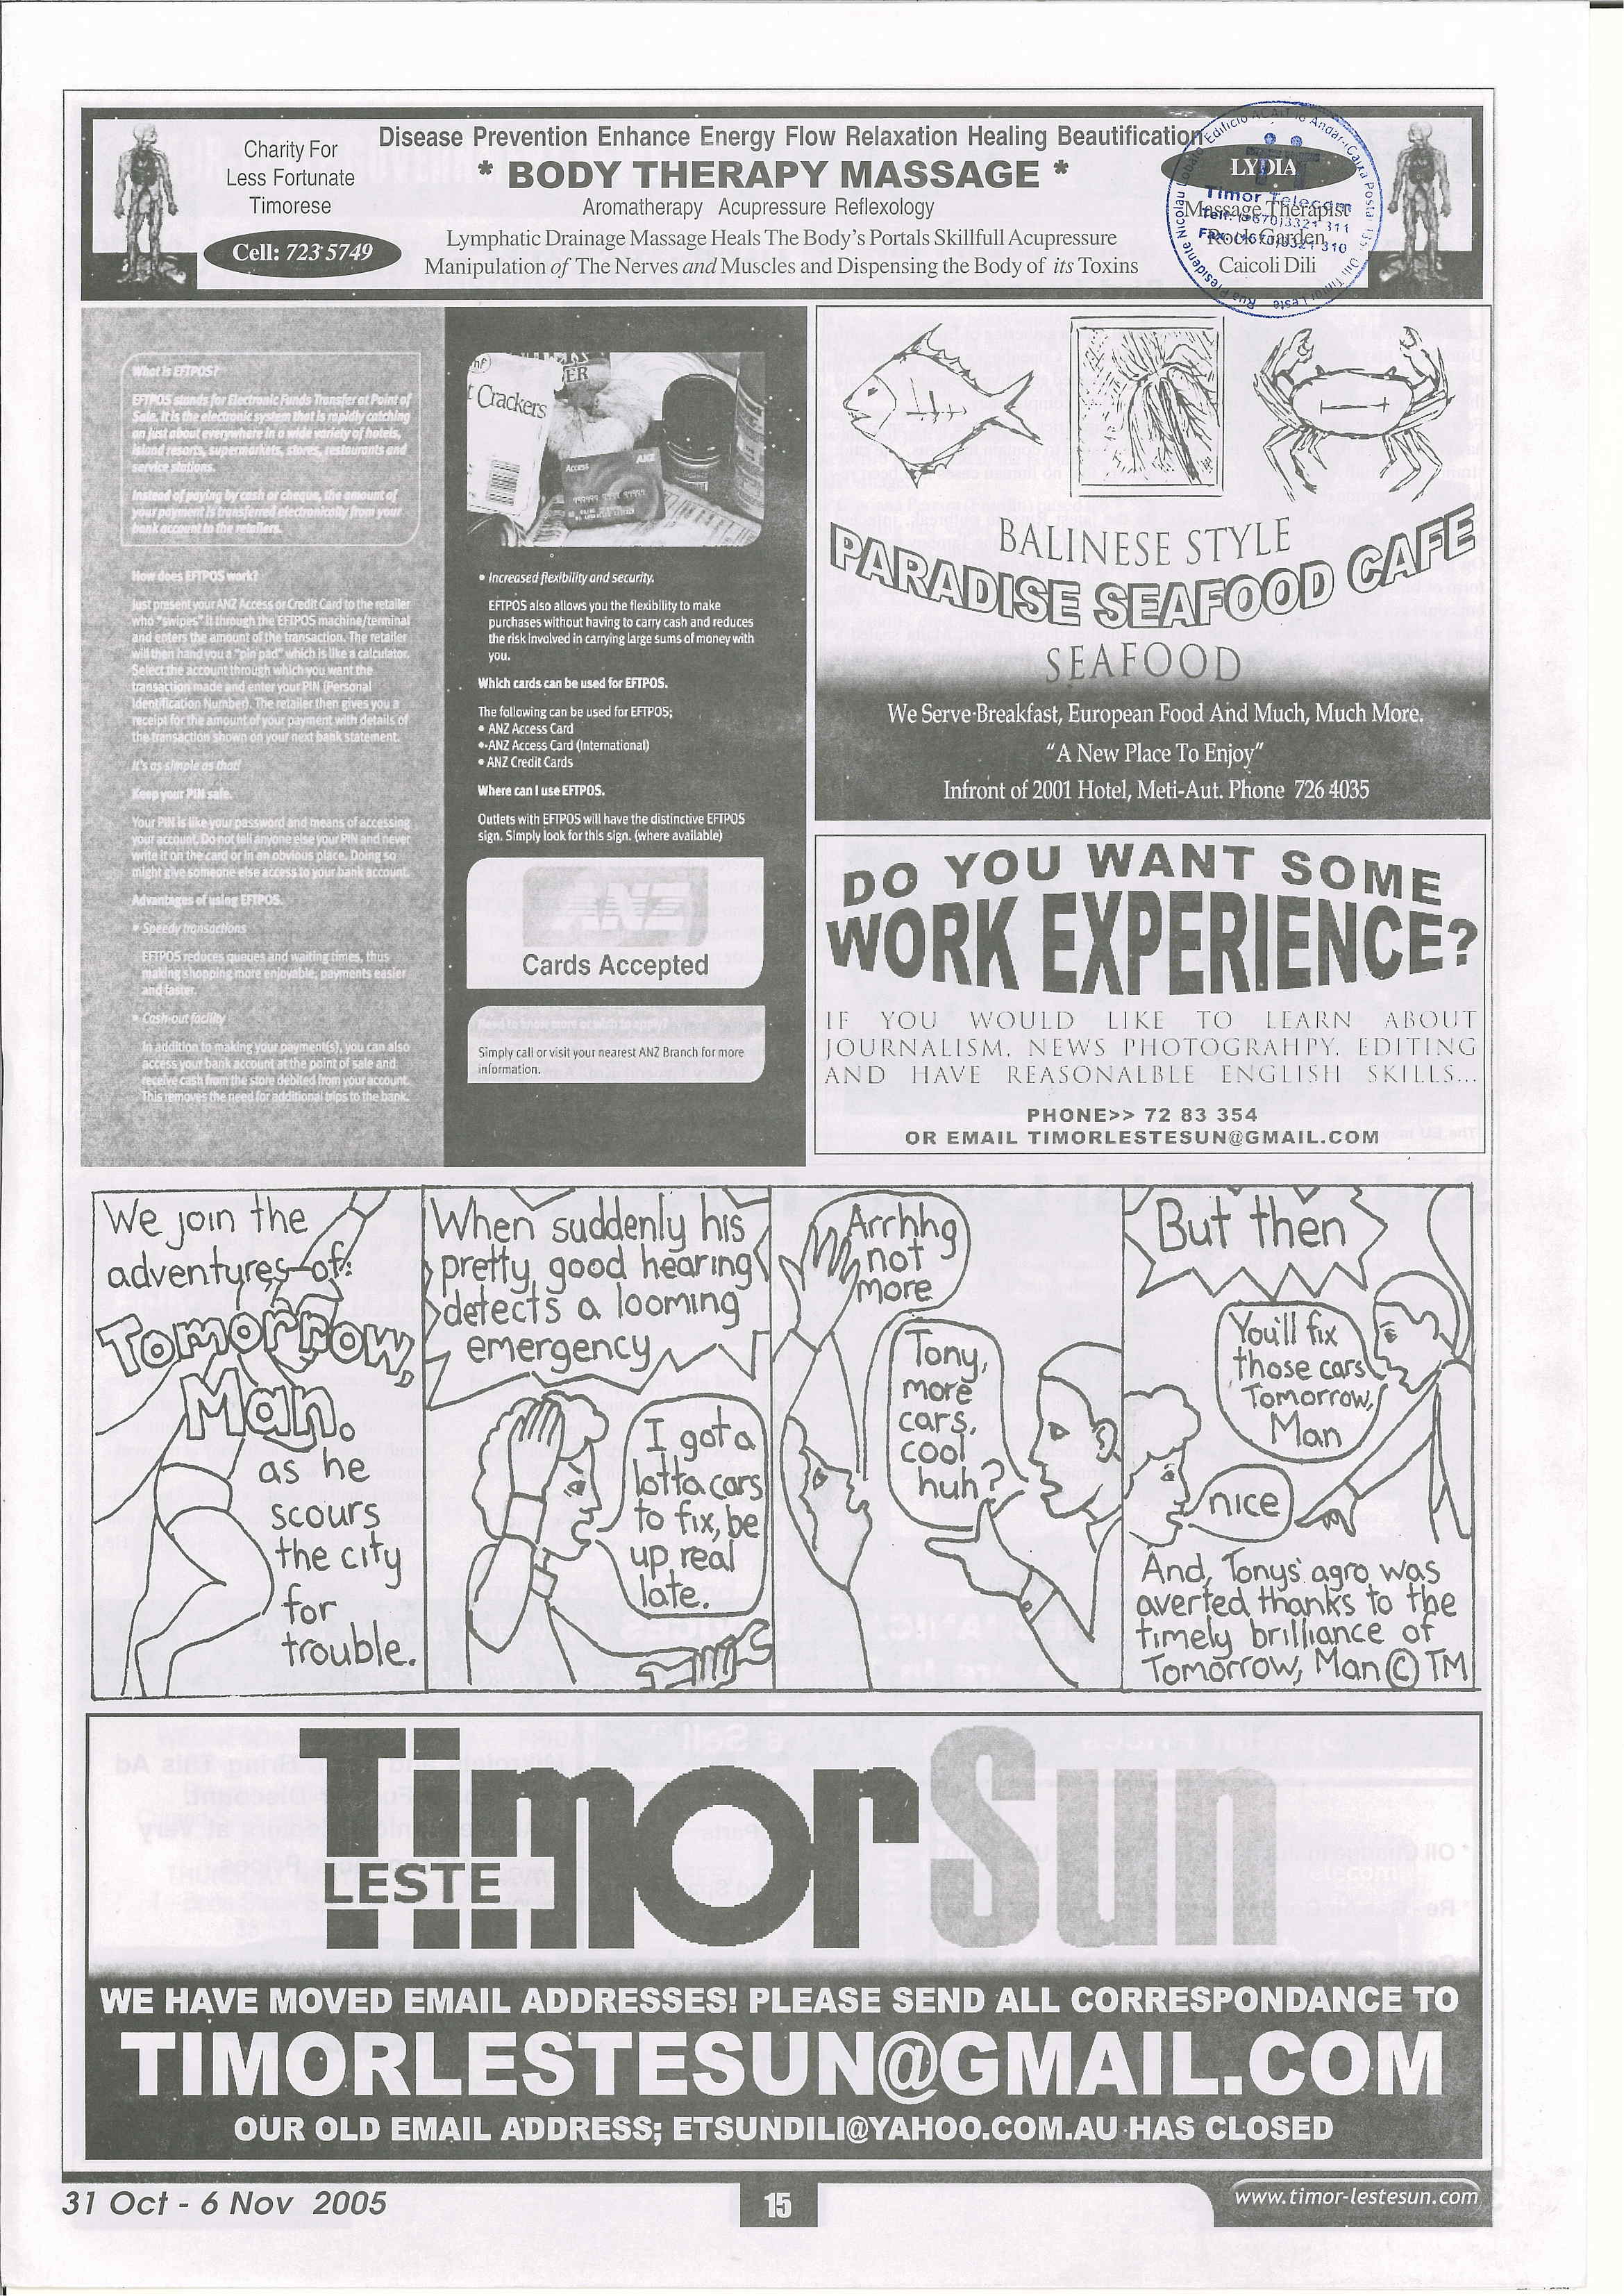 Charity For
Less Fortunate
Timorese
Cell: 723 5749
Disease Prevention Enhance Energy Flow Relaxation Healing Beautification
* BODY THERAPY MASSAGE *
Aromatherapy Acupressure Reflexology
Lymphatic Drainage Massage Heals The Body's Portals Skillfull Acupressure
Manipulation of The Nerves and Muscles and Dispensing the Body of its Toxins
LYDIA
Massage Therapist
Rock Garden
Caicoli Dili
Timor Telecom
Tell: (+670)3321 311
Fax: (+670)3321 310
What is EFTPOS?
EFTPOS stands for Electronic Funds Transfer at Point of
Sale. It is the electronic system that is rapidly catching
on just about everywhere in a wide variety of hotels,
island resorts, supermarkets, stores, restaurants and
service stations.
Instead of paying by cash or cheque, the amount of
your payment is transferred electronically from your
bank account to the retailers.
How does EFTPOS work?
Just present your ANZ Access or Credit Card to the retailer
who "swipes" it through the EFTPOS machine/terminal
and enters the amount of the transaction. The retailer
will then hand you a "pin pad" which is like a calculator.
Select the account through which you want the
transaction made and enter your PIN (Personal
Identification Number). The retailer then gives you a
receipt for the amount of your payment with details of
the transaction shown on your next bank statement.
It's as simple as that!
Keep your PIN safe.
Your PIN is like your password and means of accessing
your account. Do not tell anyone else your PIN and never
write it on the card or in an obvious place. Doing so
might give someone else access to your bank account.
Advantages of using EFTPOS.
• Speedy transactions
EFTPOS reduces queues and waiting times, thus
making shopping more enjoyable, payments easier
and faster.
• Cash-out facility
In addition to making your payment(s), you can also
access your bank account at the point of sale and
receive cash from the store debited from your account.
This removes the need for additional trips to the bank.
Crackers
Access ANZ
• Increased flexibility and security.
EFTPOS also allows you the flexibility to make
purchases without having to carry cash and reduces
the risk involved in carrying large sums of money with
you.
Which cards can be used for EFTPOS.
The following can be used for EFTPOS;
• ANZ Access Card
• ANZ Access Card (International)
• ANZ Credit Cards
Where can I use EFTPOS.
Outlets with EFTPOS will have the distinctive EFTPOS
sign. Simply look for this sign. (where available)
ANZ
Cards Accepted
Need to know more or wish to apply?
Simply call or visit your nearest ANZ Branch for more
information.
BALINESE STYLE
PARADISE SEAFOOD CAFE
SEAFOOD
We Serve Breakfast, European Food And Much, Much More.
"A New Place To Enjoy"
Infront of 2001 Hotel, Meti-Aut. Phone 726 4035
DO YOU WANT SOME
WORK EXPERIENCE?
IF YOU WOULD LIKE TO LEARN ABOUT
JOURNALISM, NEWS PHOTOGRAHPY, EDITING
AND HAVE REASONALBLE ENGLISH SKILLS...
PHONE>> 72 83 354
OR EMAIL TIMORLESTESUN@GMAIL.COM
We join the
adventures of:
Tomorrow,
Man.
as he
scours
the city
for
trouble.
When suddenly his
pretty good hearing
detects a looming
emergency
I got a
lotta cars
to fix, be
up real
late.
Arrhhg
not
more
Tony,
more
cars,
cool
huh?
But then
You'll fix
those cars
Tomorrow,
Man
nice
And, Tonys' agro was
averted thanks to the
timely brilliance of
Tomorrow, Man © TM
Timor Sun
LESTE
WE HAVE MOVED EMAIL ADDRESSES! PLEASE SEND ALL CORRESPONDANCE TO
TIMORLESTESUN@GMAIL.COM
OUR OLD EMAIL ADDRESS; ETSUNDILI@YAHOO.COM.AU HAS CLOSED
31 Oct - 6 Nov 2005
15
www.timor-lestesun.com